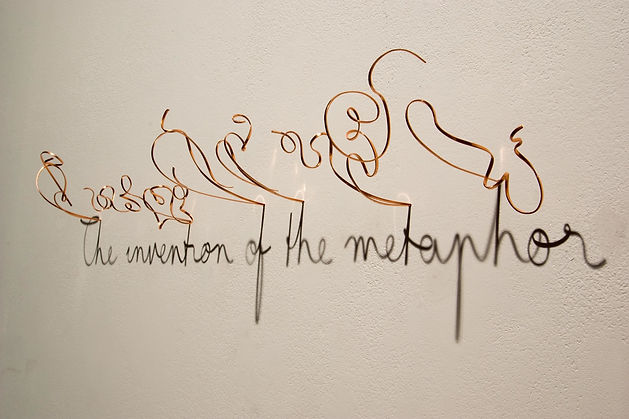 The invention of the metaphor